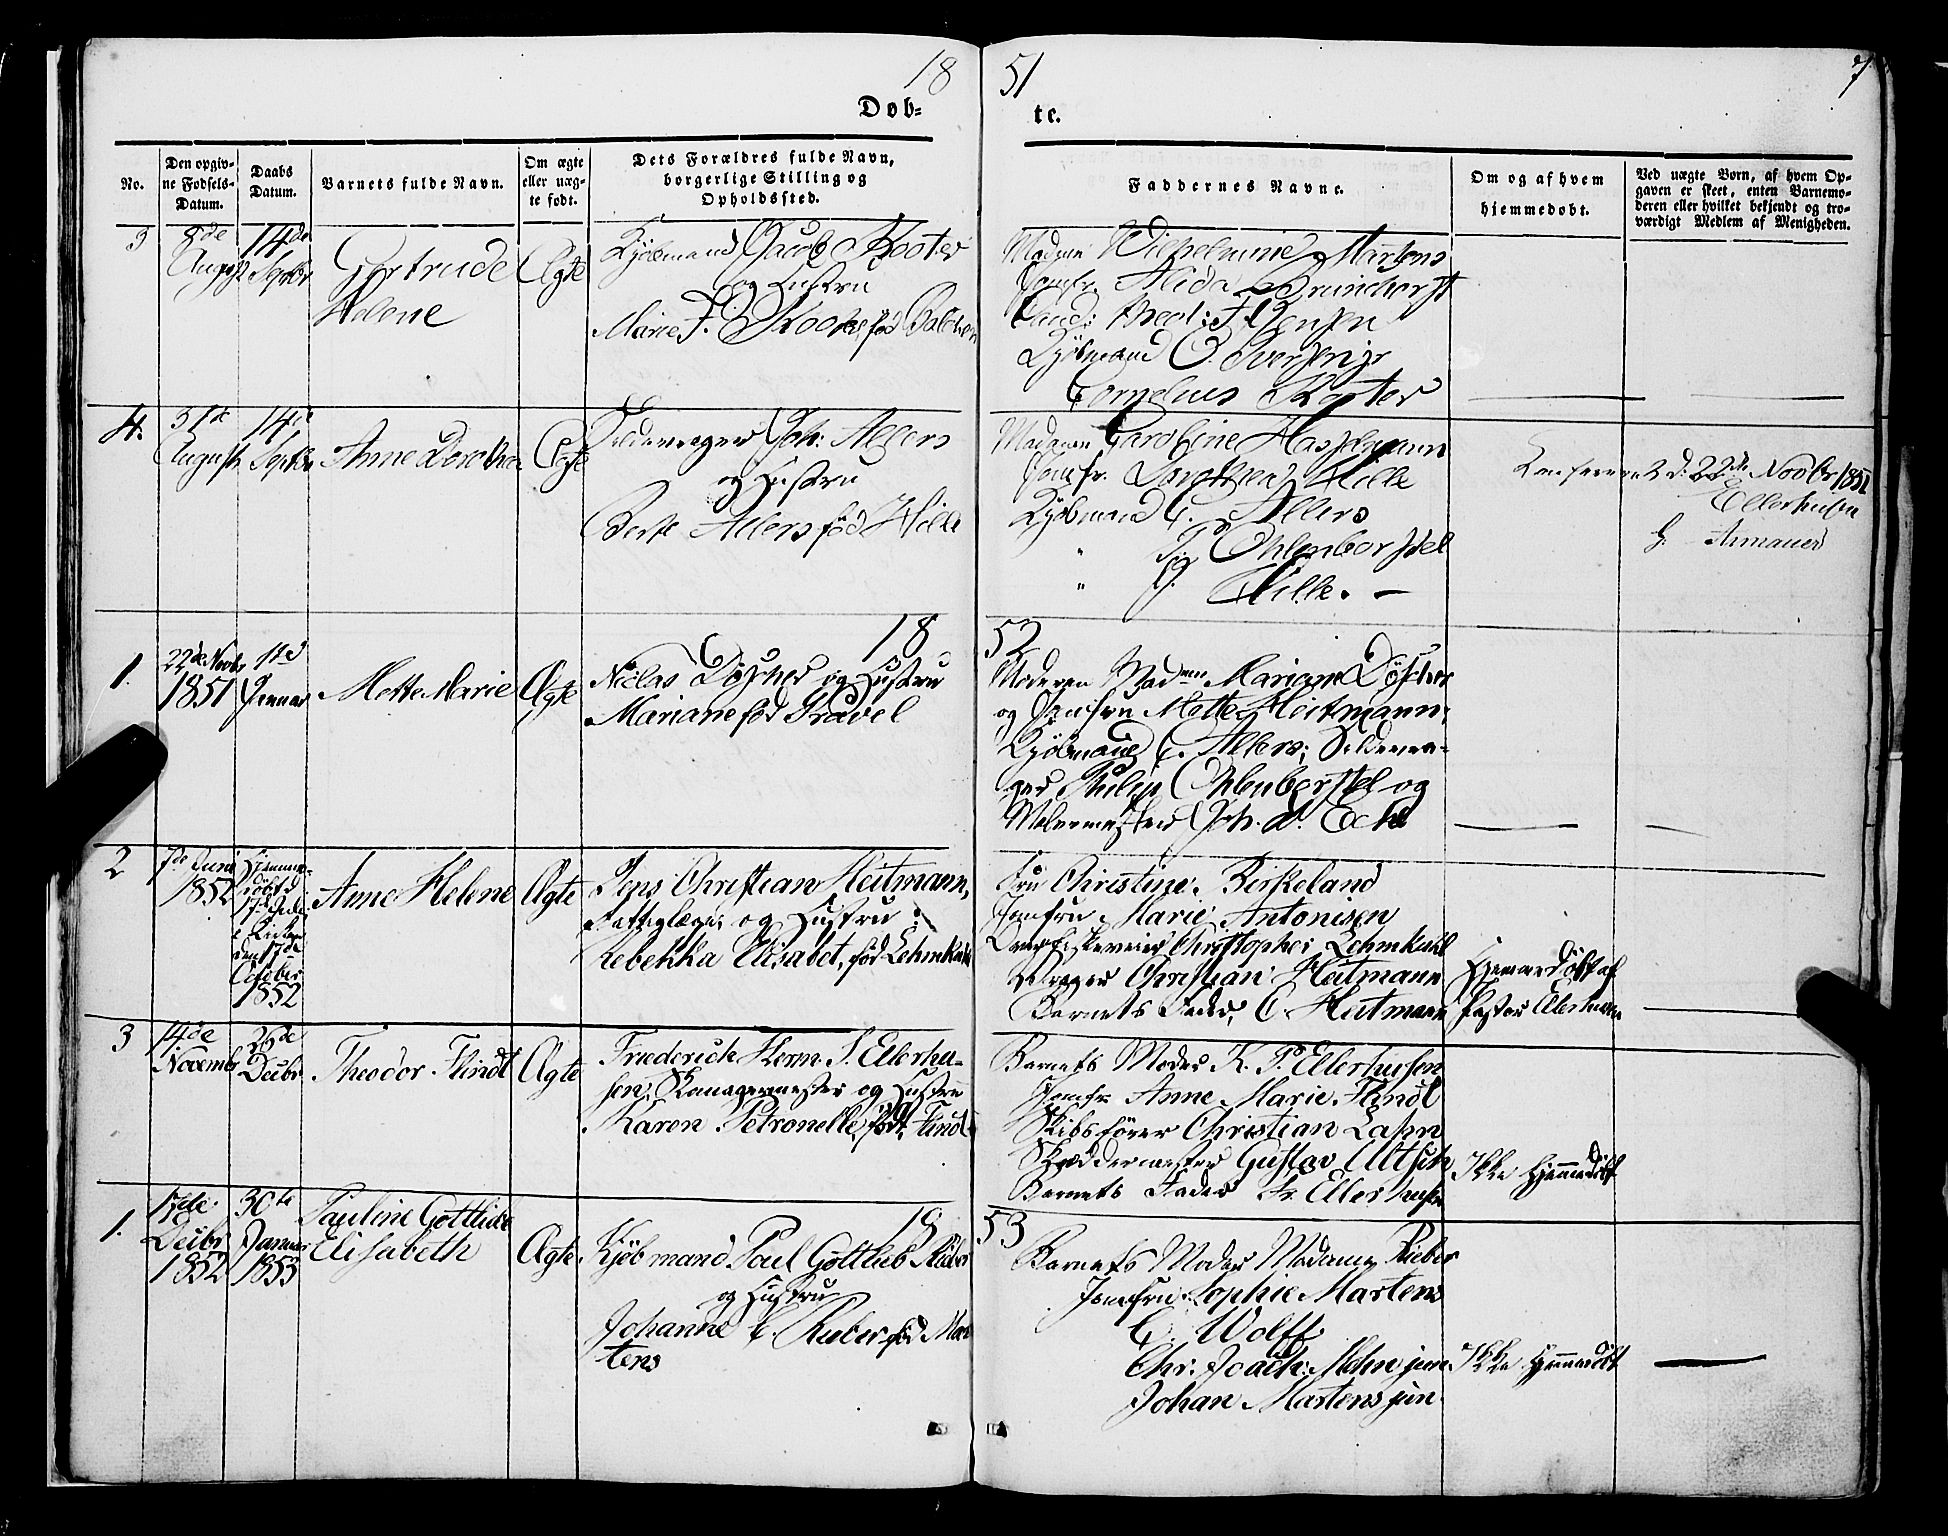 18
51
7
Døb-
te.
No.
Den opgiv-
ne Fødsels-
Datum.
Daabs
Datum.
Barnets fulde Navn.
Om ægte
eller uæg-
te født.
Dets Forældres fulde Navn,
borgerlige Stilling og
Opholdssted.
Faddernes Navne.
Om og af hvem
hjemmedøbt.
Ved uægte Børn, af hvem Op-
gaven er skeet, enten Barnemo-
deren eller hvilket bekjendt og tro-
værdigt Medlem af Menigheden.
3
8de
August
14de
Septbr
Gertrude
Helene
Ægte
Kjøbmand Jacob Kooter
og Hustru
Marie F. født
Madame Wilhelmine Martens
Jomfr. Alida Brunchorst
Cand: Theol: F.
Kjøbmand
Cornelius Koster
4.
31te
August
14de
Septbr
Anne Dorothea
Ægte
Joh: Allers
og Hustru
Berte Allers fød Hille
Madame Caroline
Jomfr. Dorothea Hille
Kjøbmand C. Allers
" Ohlenborstel
" J. Hille. —
Confereret d. 22de Novbr 1851
Ellerhusen
Armauer
18
52
1.
22de Novbr
1851
11te
Januar
Mette Marie
Ægte
Niclas Døscher og Hustru
Mariane fød Gravel
Moderen Madme Mariane Døscher
og Jomfru Mette Heitmann,
Kjøbmand C. Allers; Sildevra-
ger Philip Ohlenborstel og
Malermester Joh. d. Eck
2
7de Juni
1852
Hjemme-
døbt d
i Kirken
den 17de
October
1852
Anne Helene
Ægte
Jens Christian Heitmann,
og Hustru
Rebekka Elisabet, fød Lehmkuhl
Fru Christine Birkeland
Jomfru Marie Antonisen
Christopher Lehmkuhl
Christian Heitmann
Barnets Fader, C. Heitmann
Hjemmedøbt af
Pastor Ellerhusen
3
14de
Novembr
26de
Decbr
Theodor Flindt
Ægte
Friederich Herm. S. Ellerhu-
sen, og Hustru
Karen Petronelle, født Flindt
Barnets Moder K. P. Ellerhusen
Jomfr Anne Marie Flindt
Skibsfører Christian Lahn
Skræddermester Gustav Altsch
Barnets Fader Fr. Ellerhusen
Ikke Hjemmedøbt
18
53
1.
17de
Decbr
1852
30te
Januar
1853
Pauline Gottliebe
Elisabeth
Ægte
Kjøbmand Paul Gottlieb Rieber
og Hustru
Johanne C. Rieber fød Mar-
tens
Barnets Moder Madame Rieber
Jomfru Sophie Martens
C. Wolff
Chr. Joach: Mohn jun
Johan Martens jun.
Ikke Hjemmedøbt